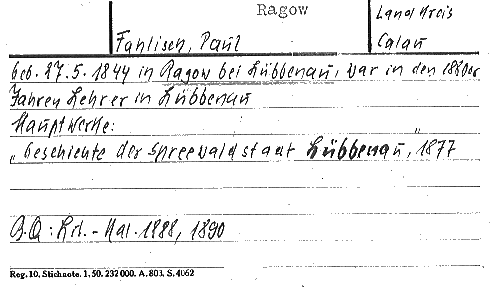 Ragow
Landkreis
Fahlisch, Paul
Calau
geb. 27.5.1844 in Ragow bei Lübbenau, war in den 1880er
Jahren Lehrer in Lübbenau
Hauptwerke:
„Geschichte der Spreewaldstadt Lübbenau", 1877
1888, 1890
Reg. 10. Stichnote. 1, 50. 232 000. A. 803. S. 4062